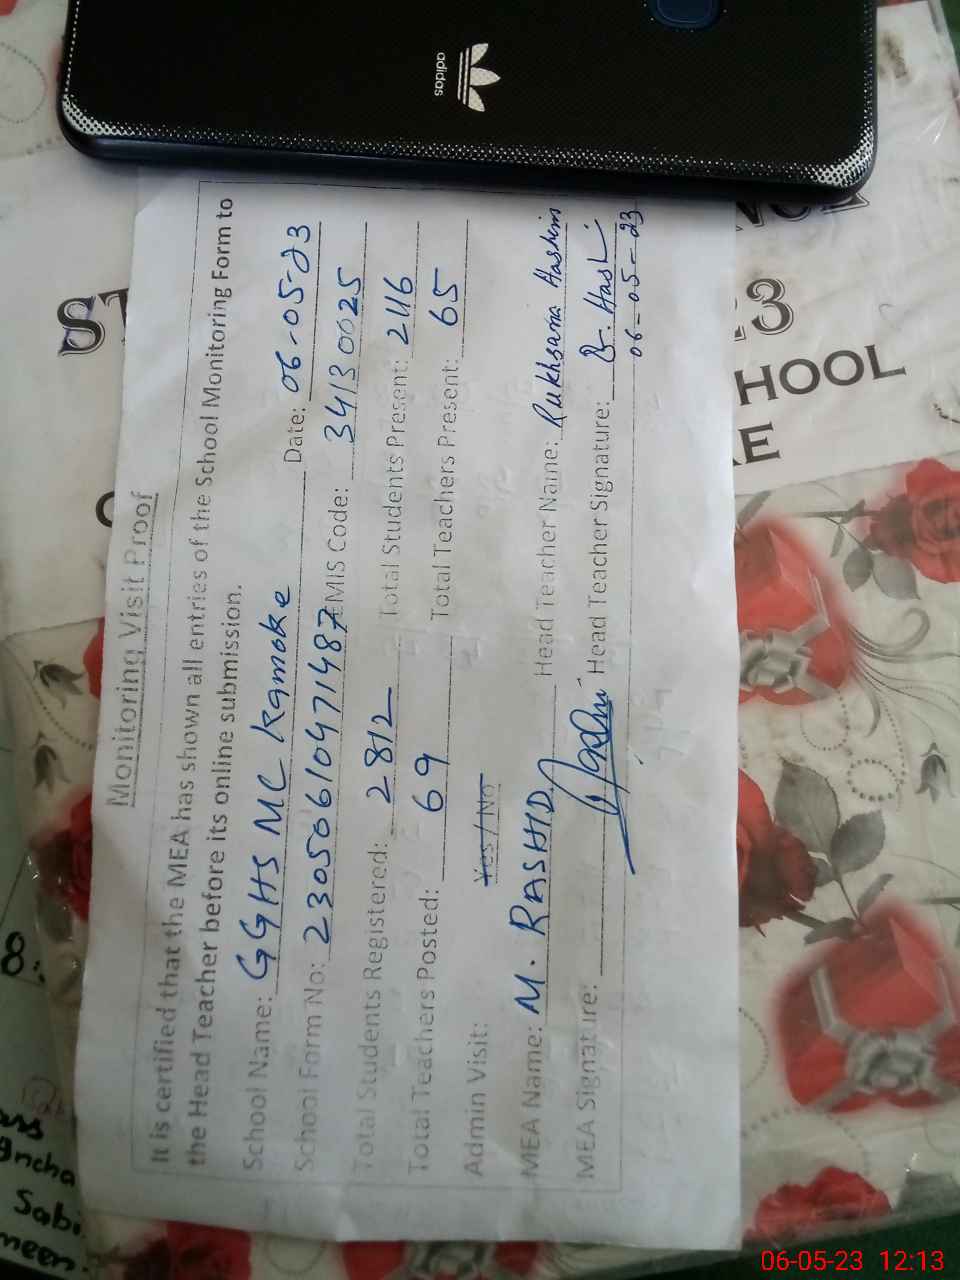 adidas
Monitoring Visit Proof
It is certified that the MEA has shown all entries of the School Monitoring Form to
the Head Teacher before its online submission.
School Name: GGHS MC Kamoke Date: 06-05-23
School Form No: 23050610471487 EMIS Code: 34130025
Total Students Registered: 2812 Total Students Present: 2116
Total Teachers Posted: 69 Total Teachers Present: 65
Admin Visit: Yes / No
MEA Name: M. RASHID Head Teacher Name: Rukhsana Hashim
MEA Signature: Head Teacher Signature: R. Hash
06-05-23
ST
23
HOOL
KE
8:
Sabi
meen.
06-05-23 12:13